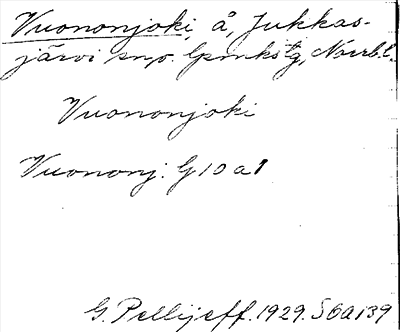 Vuononjoki, å, Jukkas-
järvi snp. lpmkstg, Norrb.l.
Vuononjoki
Vuononj. G 10 a 1
G. Pellijeff. 1929. S 6a 139